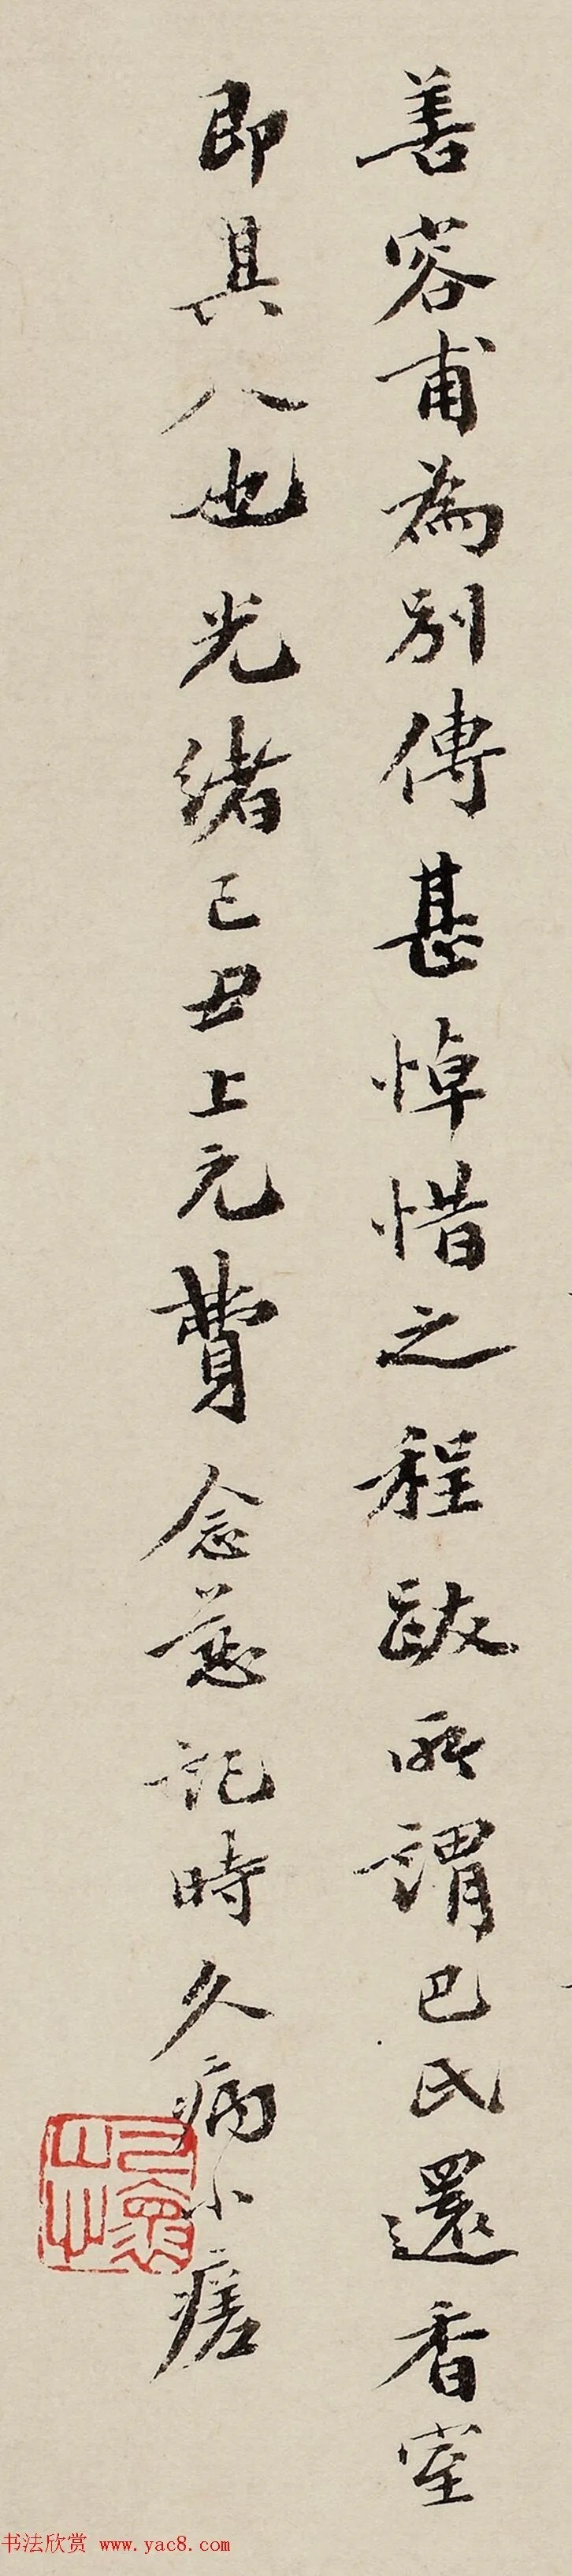 善容甫為別傳甚悼惜之程跋所謂巴氏還香室
即其人也光緒己丑上元費念慈記時久病小瘥
書法欣赏 www.yac8.com